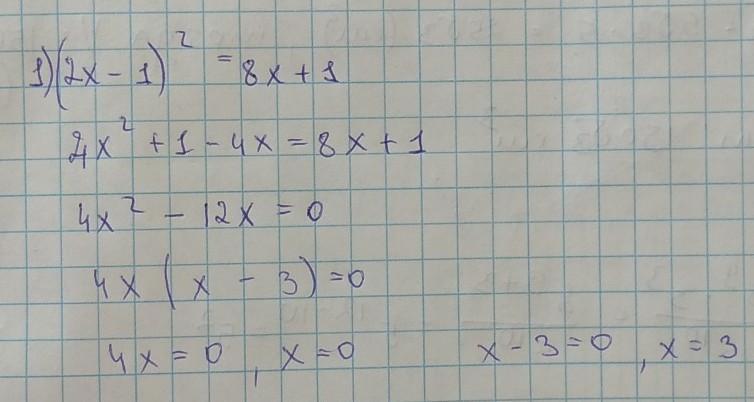 1) (2x - 1)² = 8x + 1
4x² + 1 - 4x = 8x + 1
4x² - 12x = 0
4x (x - 3) = 0
4x = 0 , x = 0    x - 3 = 0 , x = 3